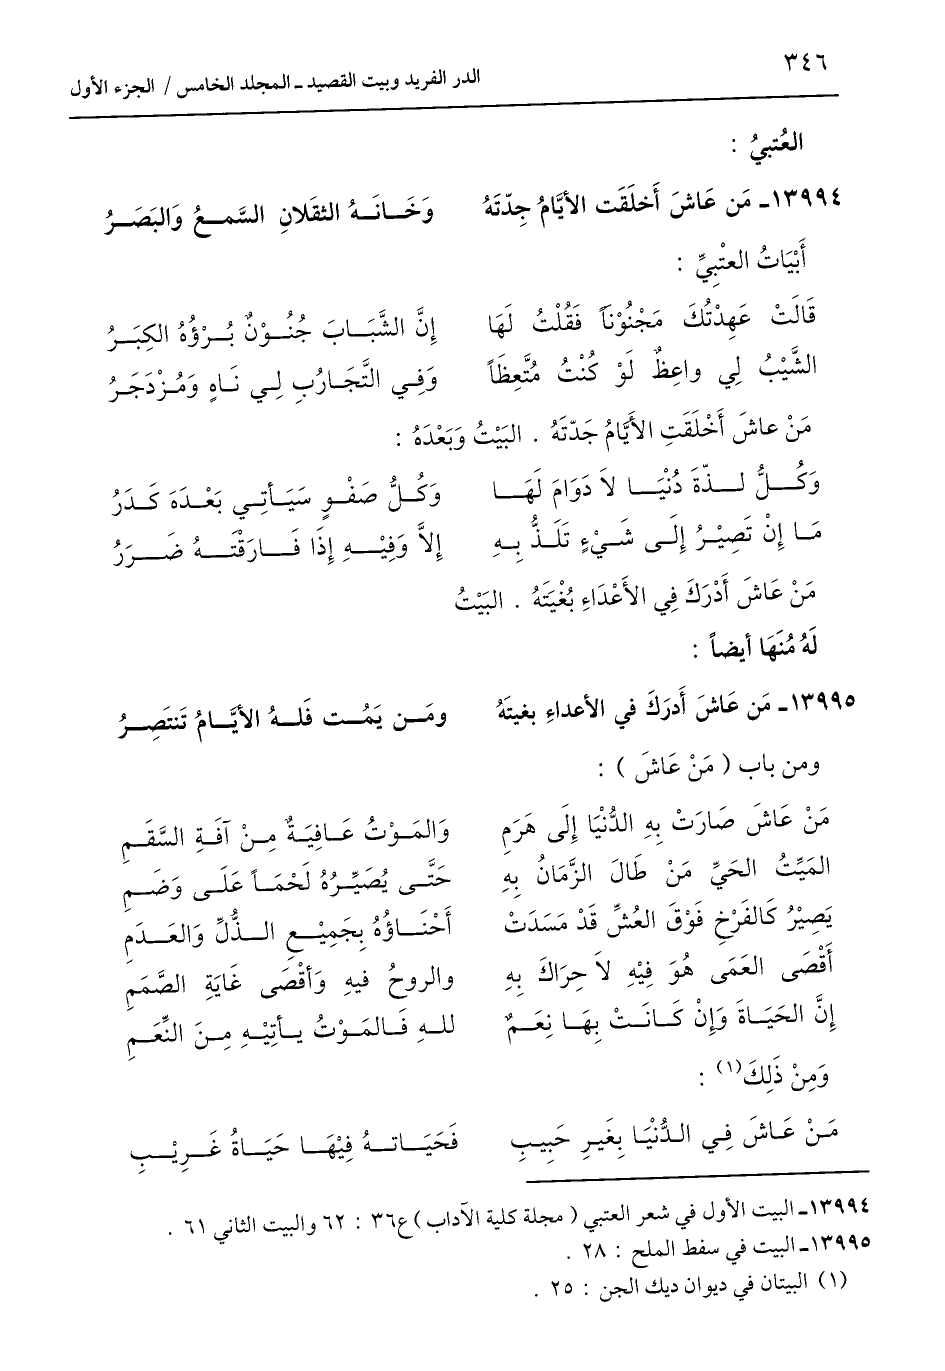 ٣٤٦
الدر الفريد وبيت القصيد ـ المجلد الخامس / الجزء الأول
العُتبيُ :
١٣٩٩٤ـ مَن عَاشَ أَخلَقَت الأيَّامُ جِدّتَهُ وَخَـانَـهُ الثقَلانِ السَّمـعُ وَالبَصَـرُ
أَبْيَاتُ العتْبِيِّ :
قَالَتْ عَهِدْتُكَ مَجْنُوْنَاً فَقُلْتُ لَهَا إِنَّ الشَّبَـابَ جُنُـوْنٌ بُـرْؤُهُ الكِبَـرُ
الشَّيْبُ لِي واعِظٌ لَوْ كُنْتُ مُتَّعِظَاً وَفِـي التَّجَـارُبِ لِـي نَـاهٍ وَمُـزْدَجَـرُ
مَنْ عاشَ أَخْلَقَتِ الأَيَّامُ جَدّتَهُ . البَيْتُ وَبَعْدَهُ :
وَكُـلُّ لـذّةِ دُنْيَـا لاَ دَوَامَ لَهَـا وَكُلُّ صَفْـوٍ سَيَـأتـي بَعْـدَهَ كَـدَرُ
مَـا إِنْ تَصِيْـرُ إِلَـى شَـيْءٍ تَلَـذُّ بِـهِ إِلاَّ وَفِيْـهِ إِذَا فَـارَقْتَـهُ ضَـرَرُ
مَنْ عَاشَ أَدْرَكَ فِي الأَعْدَاءِ بُغْيَتَهُ . البَيْتُ
لَهُ مُنَهَا أيضاً :
١٣٩٩٥ـ مَن عَاشَ أَدرَكَ في الأعداءِ بغيتَهُ ومَـن يَمُـت فَلـهُ الأيَّـامُ تَنتَصِـرُ
ومن باب ( مَنْ عَاشَ ) :
مَنْ عَاشَ صَارَتْ بِهِ الدُّنْيَا إِلَى هَرَمِ وَالمَـوْتُ عَـافِيَـةٌ مِـنْ آفَـةِ السَّقَـمِ
المَيِّتُ الحَيِّ مَنْ طَالَ الزَّمَانُ بِهِ حَتَّـى يُصَيِّـرُهُ لَحْمَـاً عَلَـى وَضَـمِ
يَصِيْرُ كَالفَرْخِ فَوْقَ العُشِّ قَدْ مَسَدَتْ أَحْنَـاؤُهُ بِجَمِيْـعِ الـذُّلِّ وَالعَـدَمِ
أَقْصَى العَمَى هُوَ فِيْهِ لاَ حِرَاكَ بِهِ والروحُ فيهِ وَأقْصَى غَايَةِ الصَّمَمِ
إِنَّ الحَيَـاةَ وَإِنْ كَـانَـتْ بِهَـا نِعَـمٌ للهِ فَـالمَـوْتُ يـأتيْـهِ مِـنَ النِّعَـمِ
وَمِنْ ذَلِكَ(١) :
مَـنْ عَـاشَ فِـي الـدُّنْيَـا بِغَيـرِ حَبِيـبِ فَحَيَـاتـهُ فِيْهَـا حَيَـاةُ غَـرِيْـبِ
١٣٩٩٤ـ البيت الأول في شعر العتبي ( مجلة كلية الآداب ) ع٣٦ : ٦٢ والبيت الثاني ٦١ .
١٣٩٩٥ـ البيت في سفط الملح : ٢٨ .
(١) البيتان في ديوان ديك الجن : ٢٥ .